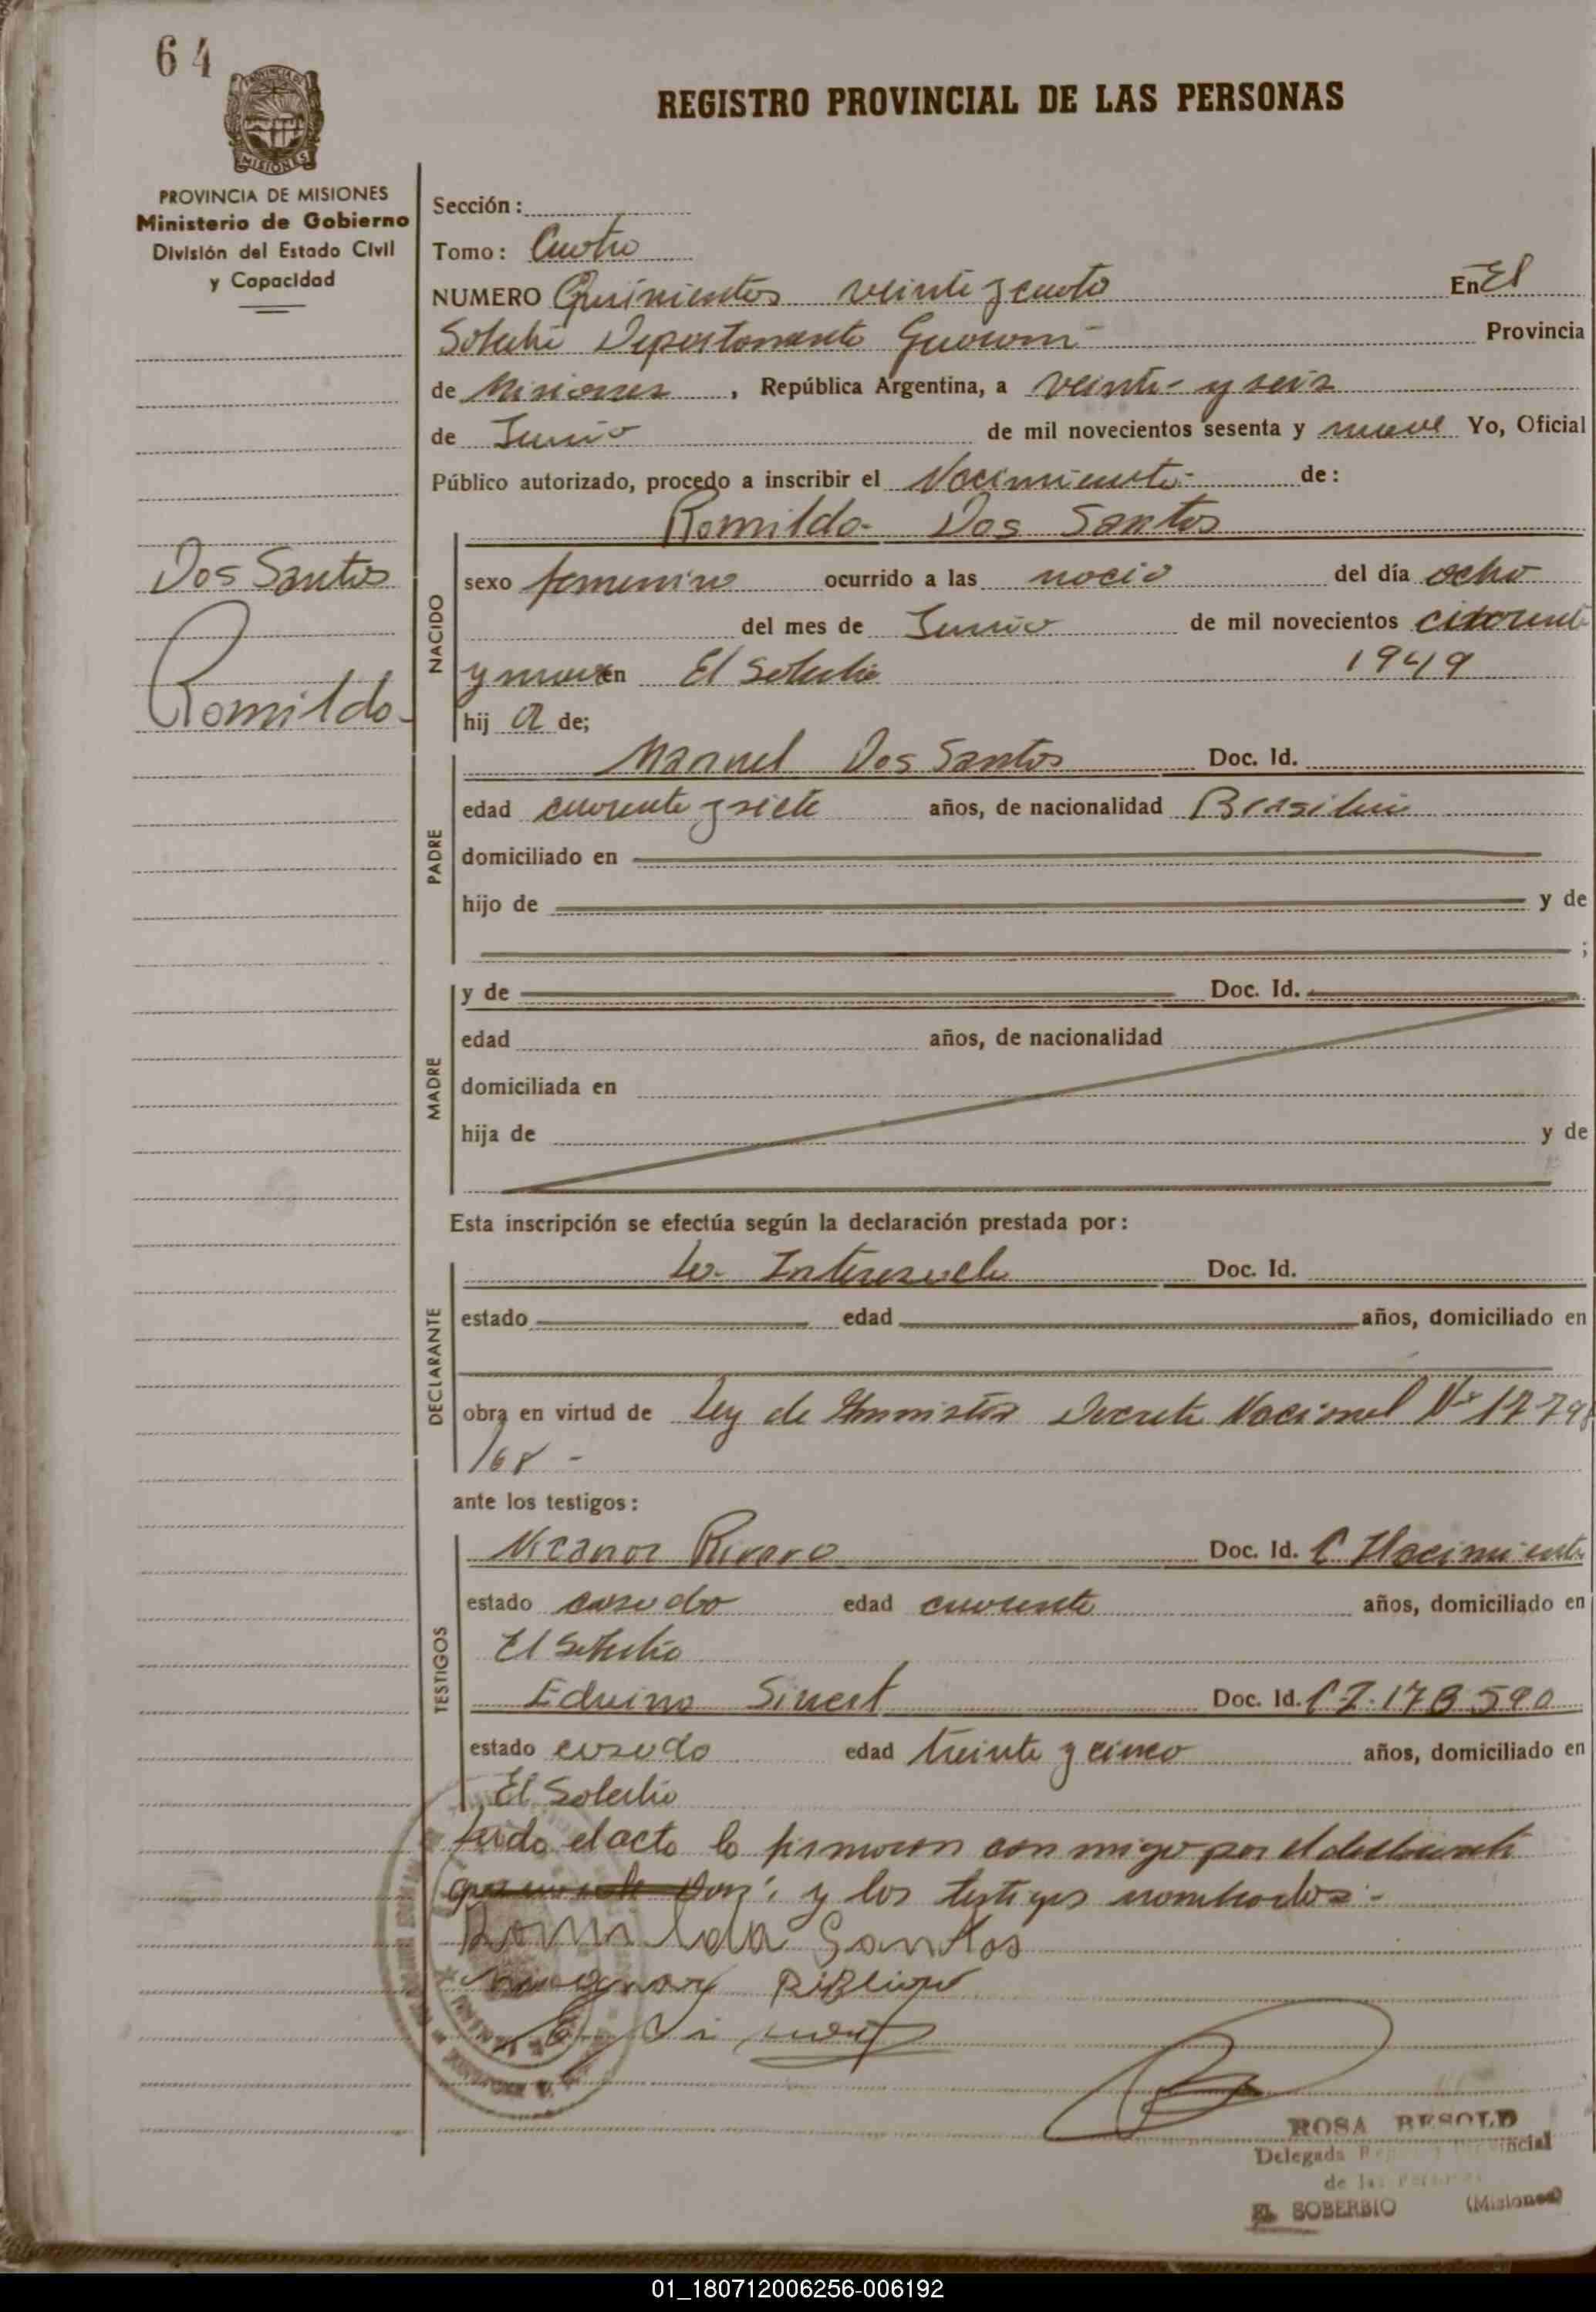 64
PROVINCIA DE MISIONES
MISIONES
REGISTRO PROVINCIAL DE LAS PERSONAS
PROVINCIA DE MISIONES
Ministerio de Gobierno
División del Estado Civil
y Capacidad
Sección:
Tomo: Cuatro
NUMERO Quinientos veinte y cuato En El
Soberbio Departamento Guarani Provincia
de Misiones, República Argentina, a veinte y seis
de Junio de mil novecientos sesenta y nueve Yo, Oficial
Público autorizado, procedo a inscribir el Nacimiento de:
Romilda Dos Santos
Dos Santos
Romilda
NACIDO
sexo femenino ocurrido a las nació del día ocho
del mes de Junio de mil novecientos cuarenta
y nueve en El Soberbio 1949
hij a de;
PADRE
Manuel Dos Santos Doc. Id.
edad cuarenta y siete años, de nacionalidad
domiciliado en
hijo de y de
;
MADRE
y de Doc. Id.
edad años, de nacionalidad
domiciliada en
hija de y de
Esta inscripción se efectúa según la declaración prestada por:
DECLARANTE
La Interesada Doc. Id.
estado edad años, domiciliado en
obra en virtud de Ley de Amnistia Decreto Nacional Nº 17798
/68 -
ante los testigos:
TESTIGOS
Nicanor Rivero Doc. Id. C Nacimiento
estado casado edad cuarenta años, domiciliado en
El Soberbio
Edvino Sinert Doc. Id. C I. 178.590
estado casado edad treinta y cinco años, domiciliado en
El Soberbio
Leida el acta la firmaron con migo por el declarante
y los testigos nombrados.-
Romilda Santos
ROSA BESOLD
Delegada Provincial
de las
EL SOBERBIO (Misiones)
01_180712006256-006192